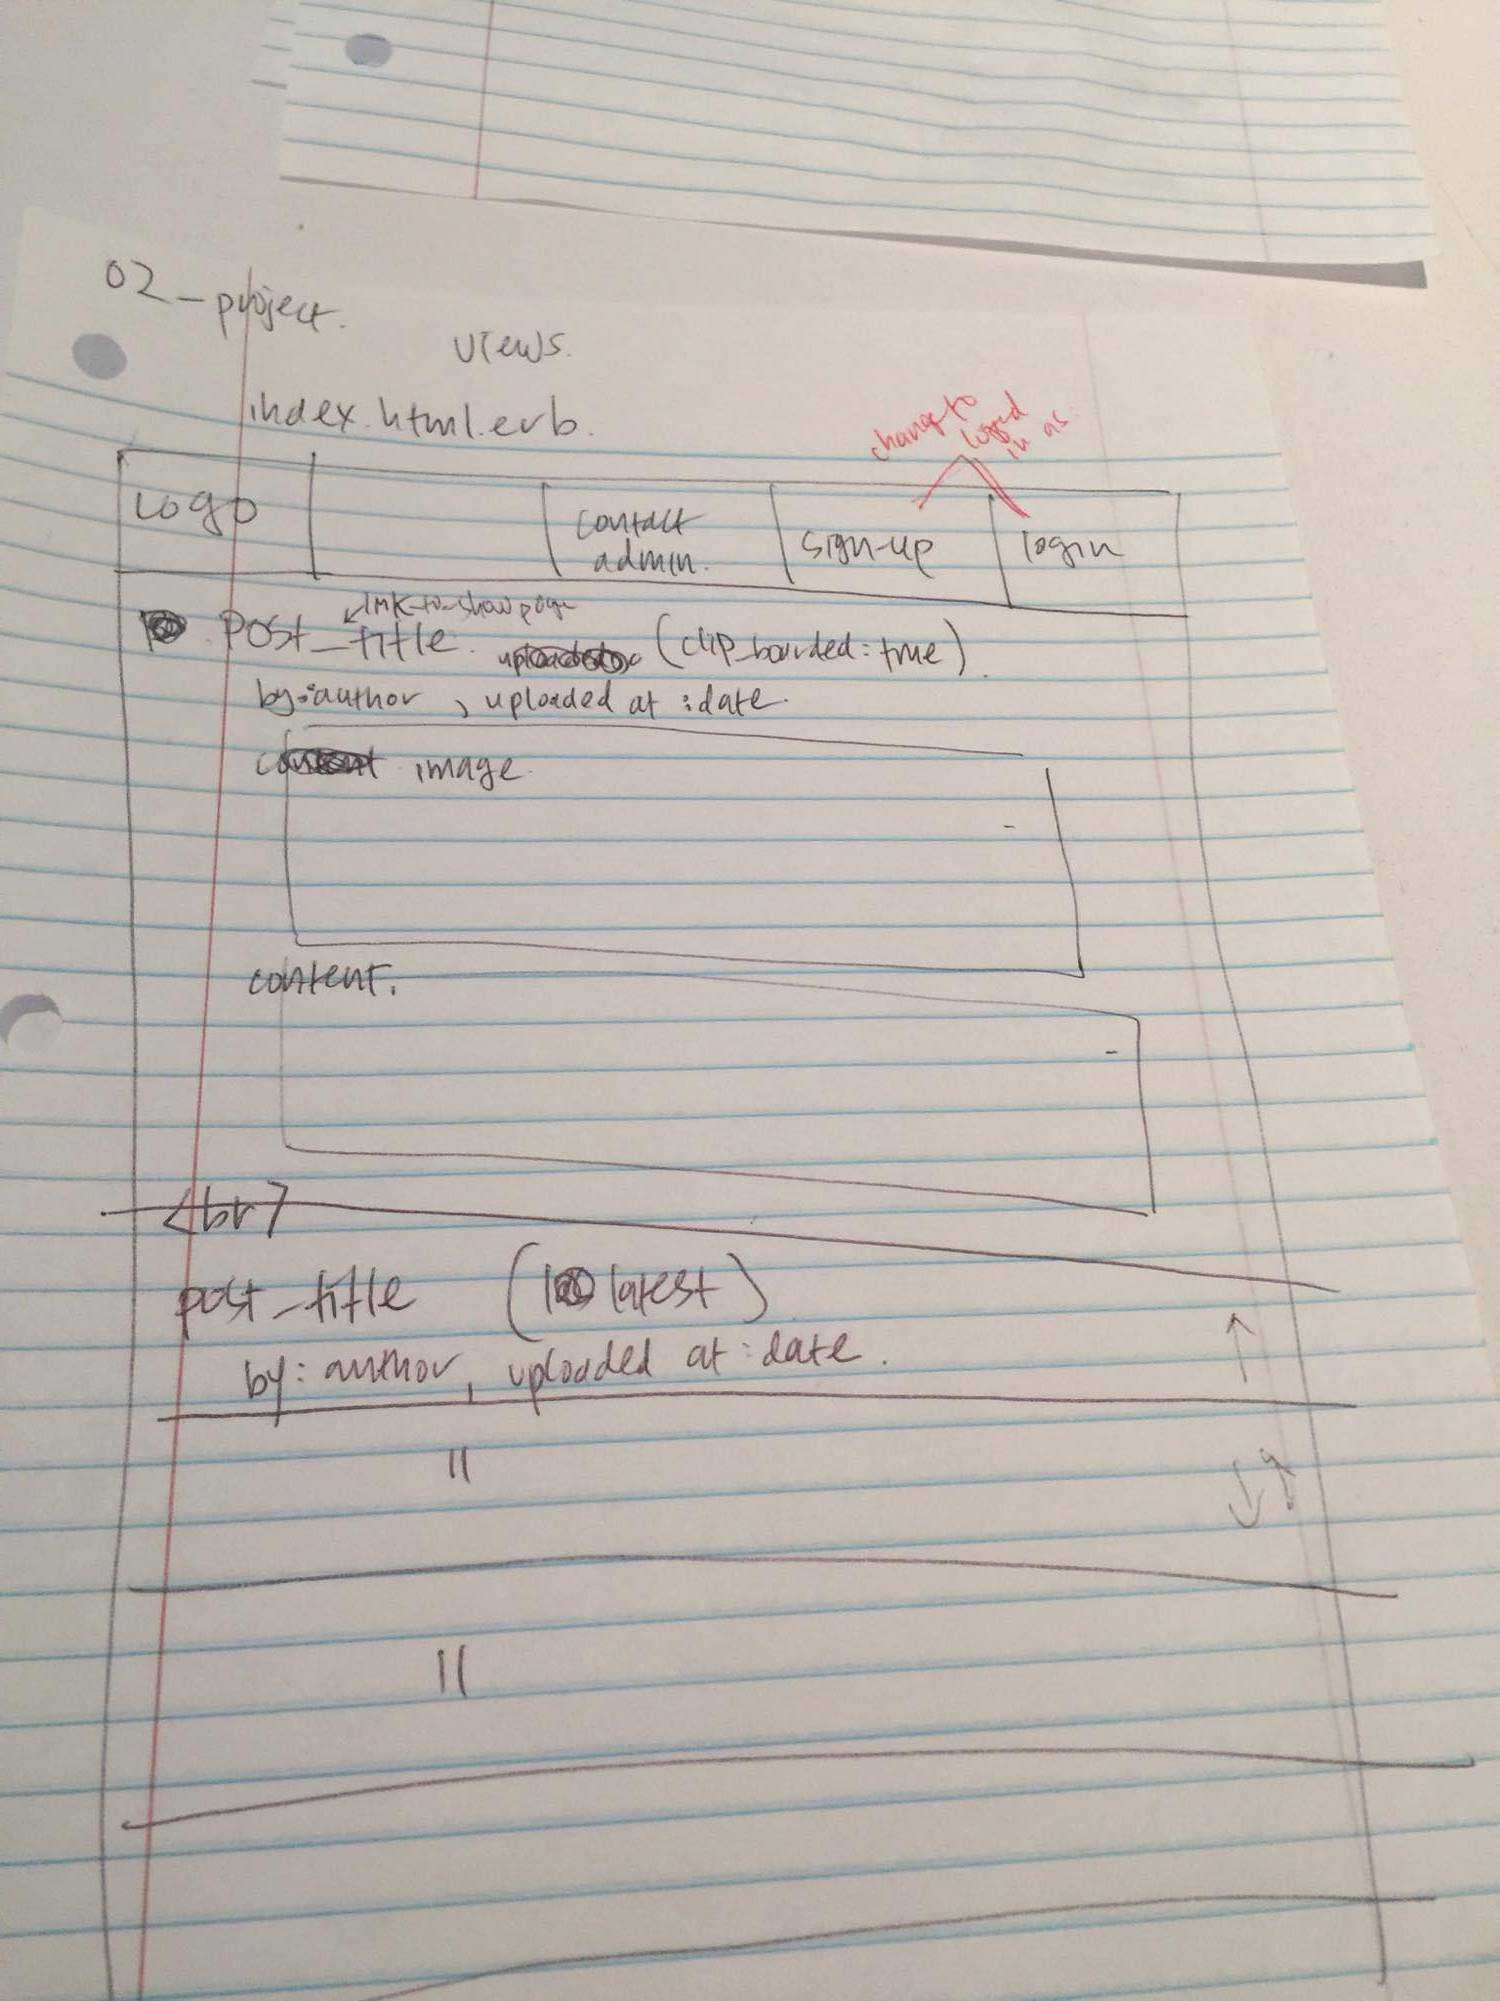 02-project.
views.
index.html.erb.
change to
logged
in as
Logo
contact
admin.
sign-up
login
link-to-show page
Post_title. (clip_boarded: true)
by: author, uploaded at :date.
image.
content.
<br>
post_title (latest)
by: author, uploaded at :date.
"
"